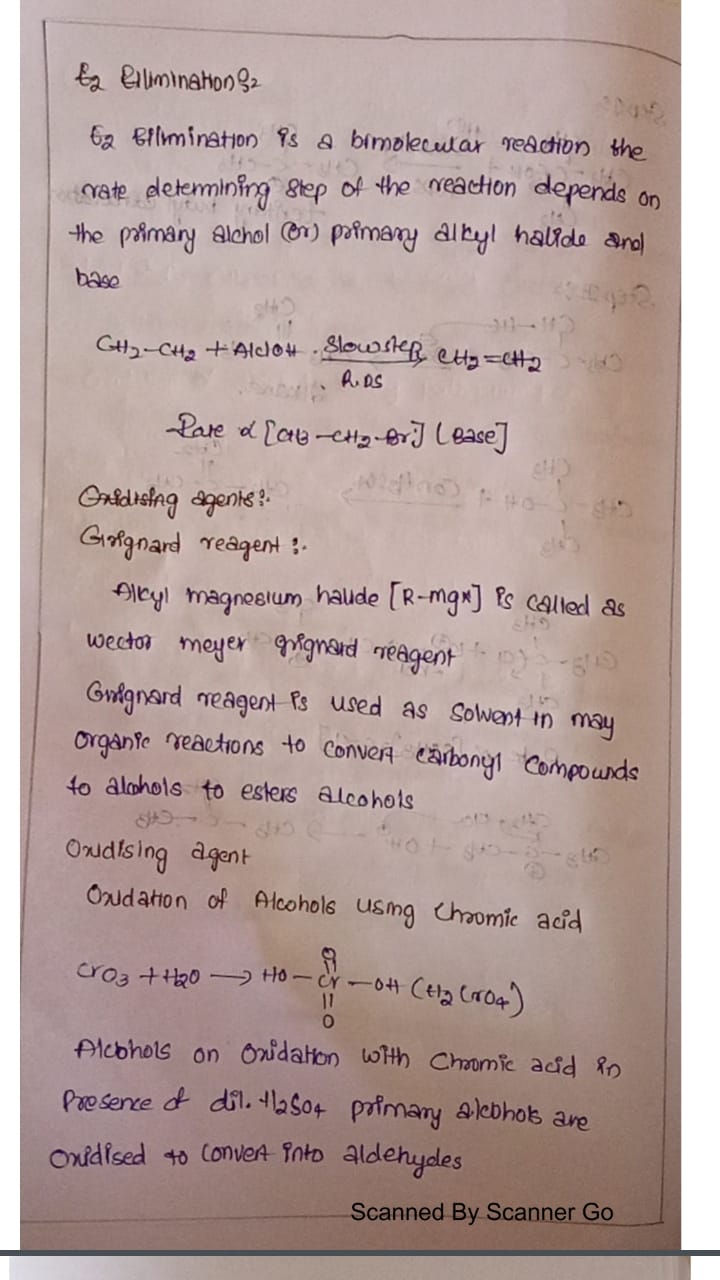 E2 Elimination:-
E2 Elimination is a bimolecular reaction the
rate determining step of the reaction depends on
the primary alchol (or) primary alkyl halide and
base
CH2-CH2 + AlclOH Slowstep CH2=CH2
R.DS
Rate α [CH3-CH2-Br] [Base]
Oxidising agents:-
Grignard reagent :-
Alkyl magnesium halide [R-mgx] is called as
wector meyer grignard reagent
Grignard reagent is used as solvent in may
organic reactions to convert carbonyl compounds
to alcohols to esters alcohols
Oxidising agent
Oxidation of Alcohols using chromic acid
O
CrO3 + H2O → HO-Cr-OH (H2CrO4)
O
Alcohols on oxidation with chromic acid in
Presence of dil. H2SO4 primary alcohols are
oxidised to convert into aldehydes
Scanned By Scanner Go